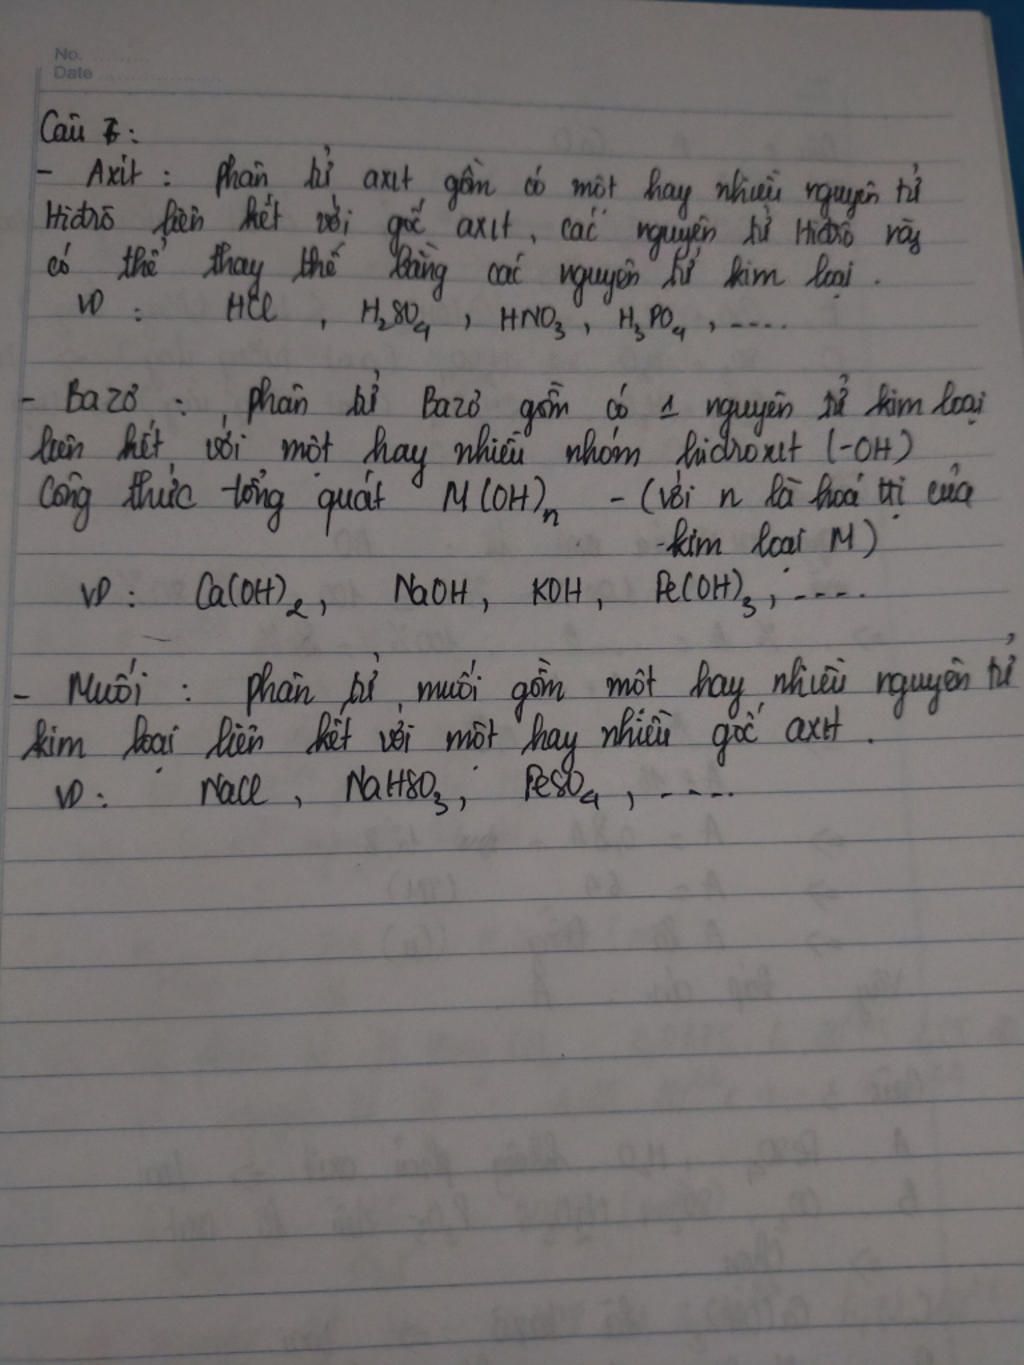 No. ..........
Date ......................
Câu 6:
- Axit : phân tử axit gồm có một hay nhiều nguyên tử
Hiđrô liên kết với gốc axit, các nguyên tử Hiđrô này
có thể thay thế bằng các nguyên tử kim loại.
VD : HCl , H₂SO₄ , HNO₃ , H₃PO₄ , ....
- Bazơ : phân tử Bazơ gồm có 1 nguyên tử kim loại
liên kết với một hay nhiều nhóm hiđroxit (-OH)
Công thức tổng quát M(OH)ₙ - (với n là hoá trị của
kim loại M)
VD : Ca(OH)₂, NaOH, KOH, Fe(OH)₃, ....
- Muối : phân tử muối gồm một hay nhiều nguyên tử
kim loại liên kết với một hay nhiều gốc axit.
VD : NaCl , NaHSO₃, FeSO₄ , ....